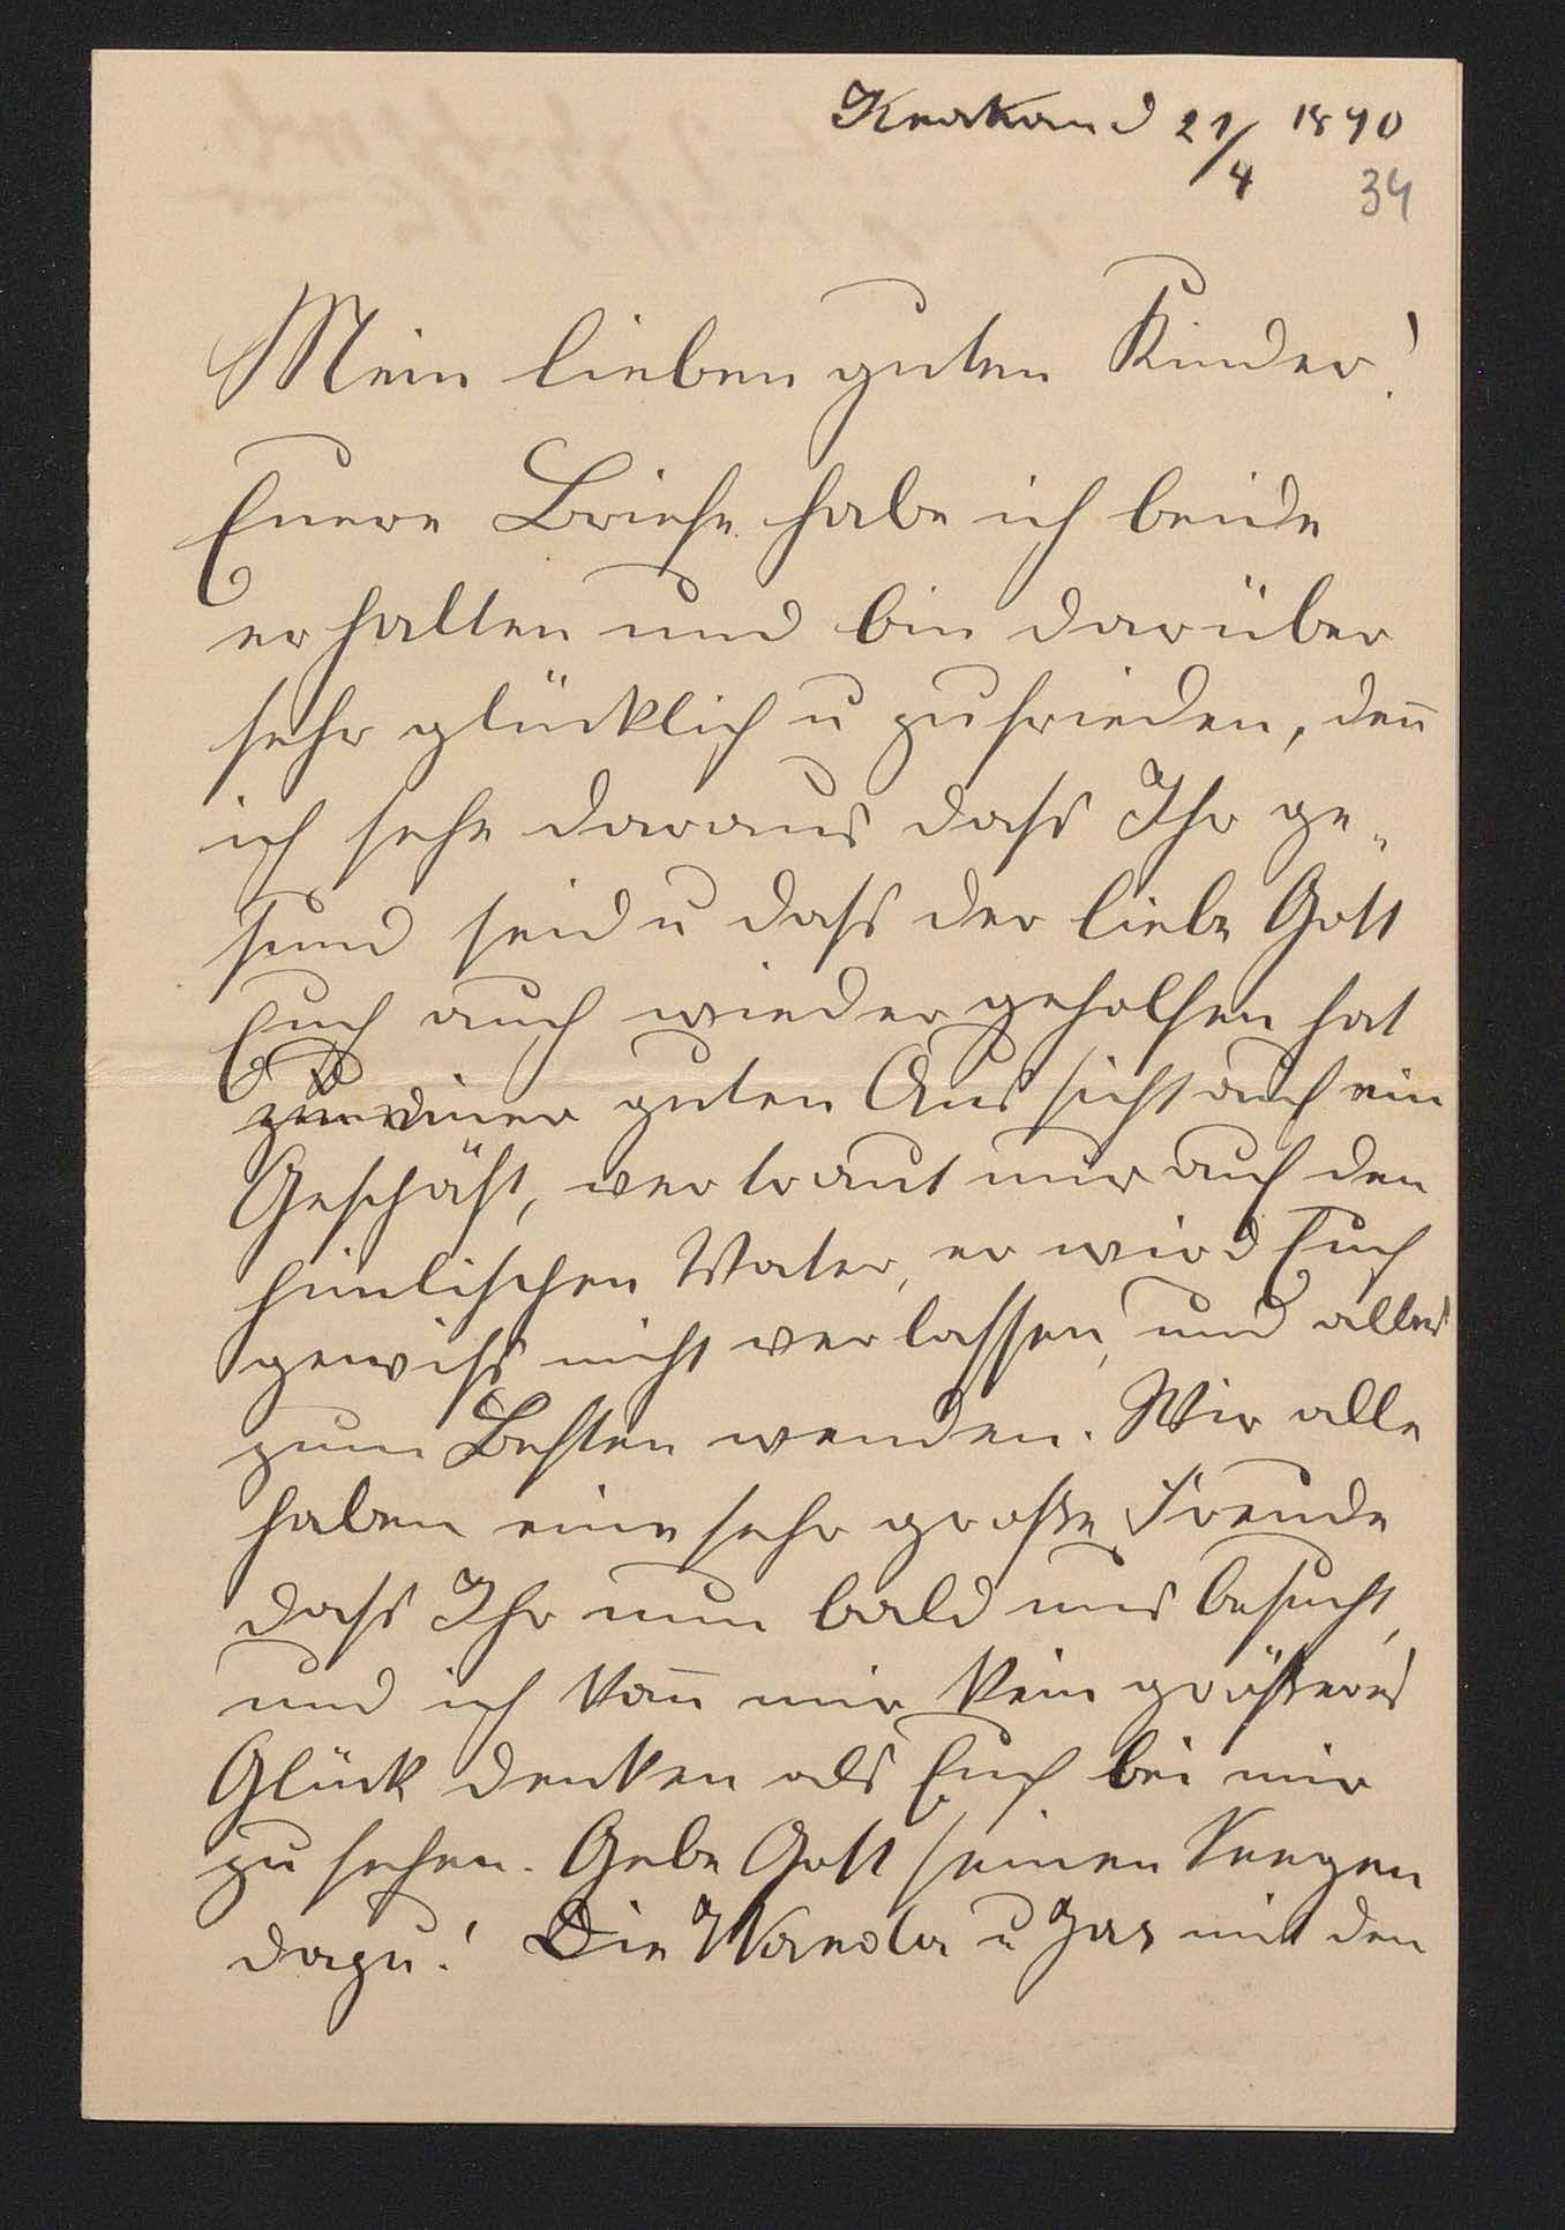 Krakau d 21/4 1890
34
Mein lieben guten Kinder!
Euere Briefe habe ich beide
erhalten und bin darüber
sehr glücklich u zufrieden, deñ
ich sehe daraus dass Ihr ge„
sund seid u dass der liebe Gott
Euch auch wieder geholfen hat
zu einer guten Aussicht auf ein
Geschäft, vertraut nur auf den
him̄lischen Vater, er wird Euch
gewiss nicht verlassen, und alles
zum Besten wenden. Wir alle
haben eine sehr große Freude
dass Ihr nun bald uns besucht,
und ich kañ mir kein größeres
Glück denken als Euch bei mir
zu sehen. Gebe Gott seinen Seegen
dazu! Die Wanda u Jas mit den